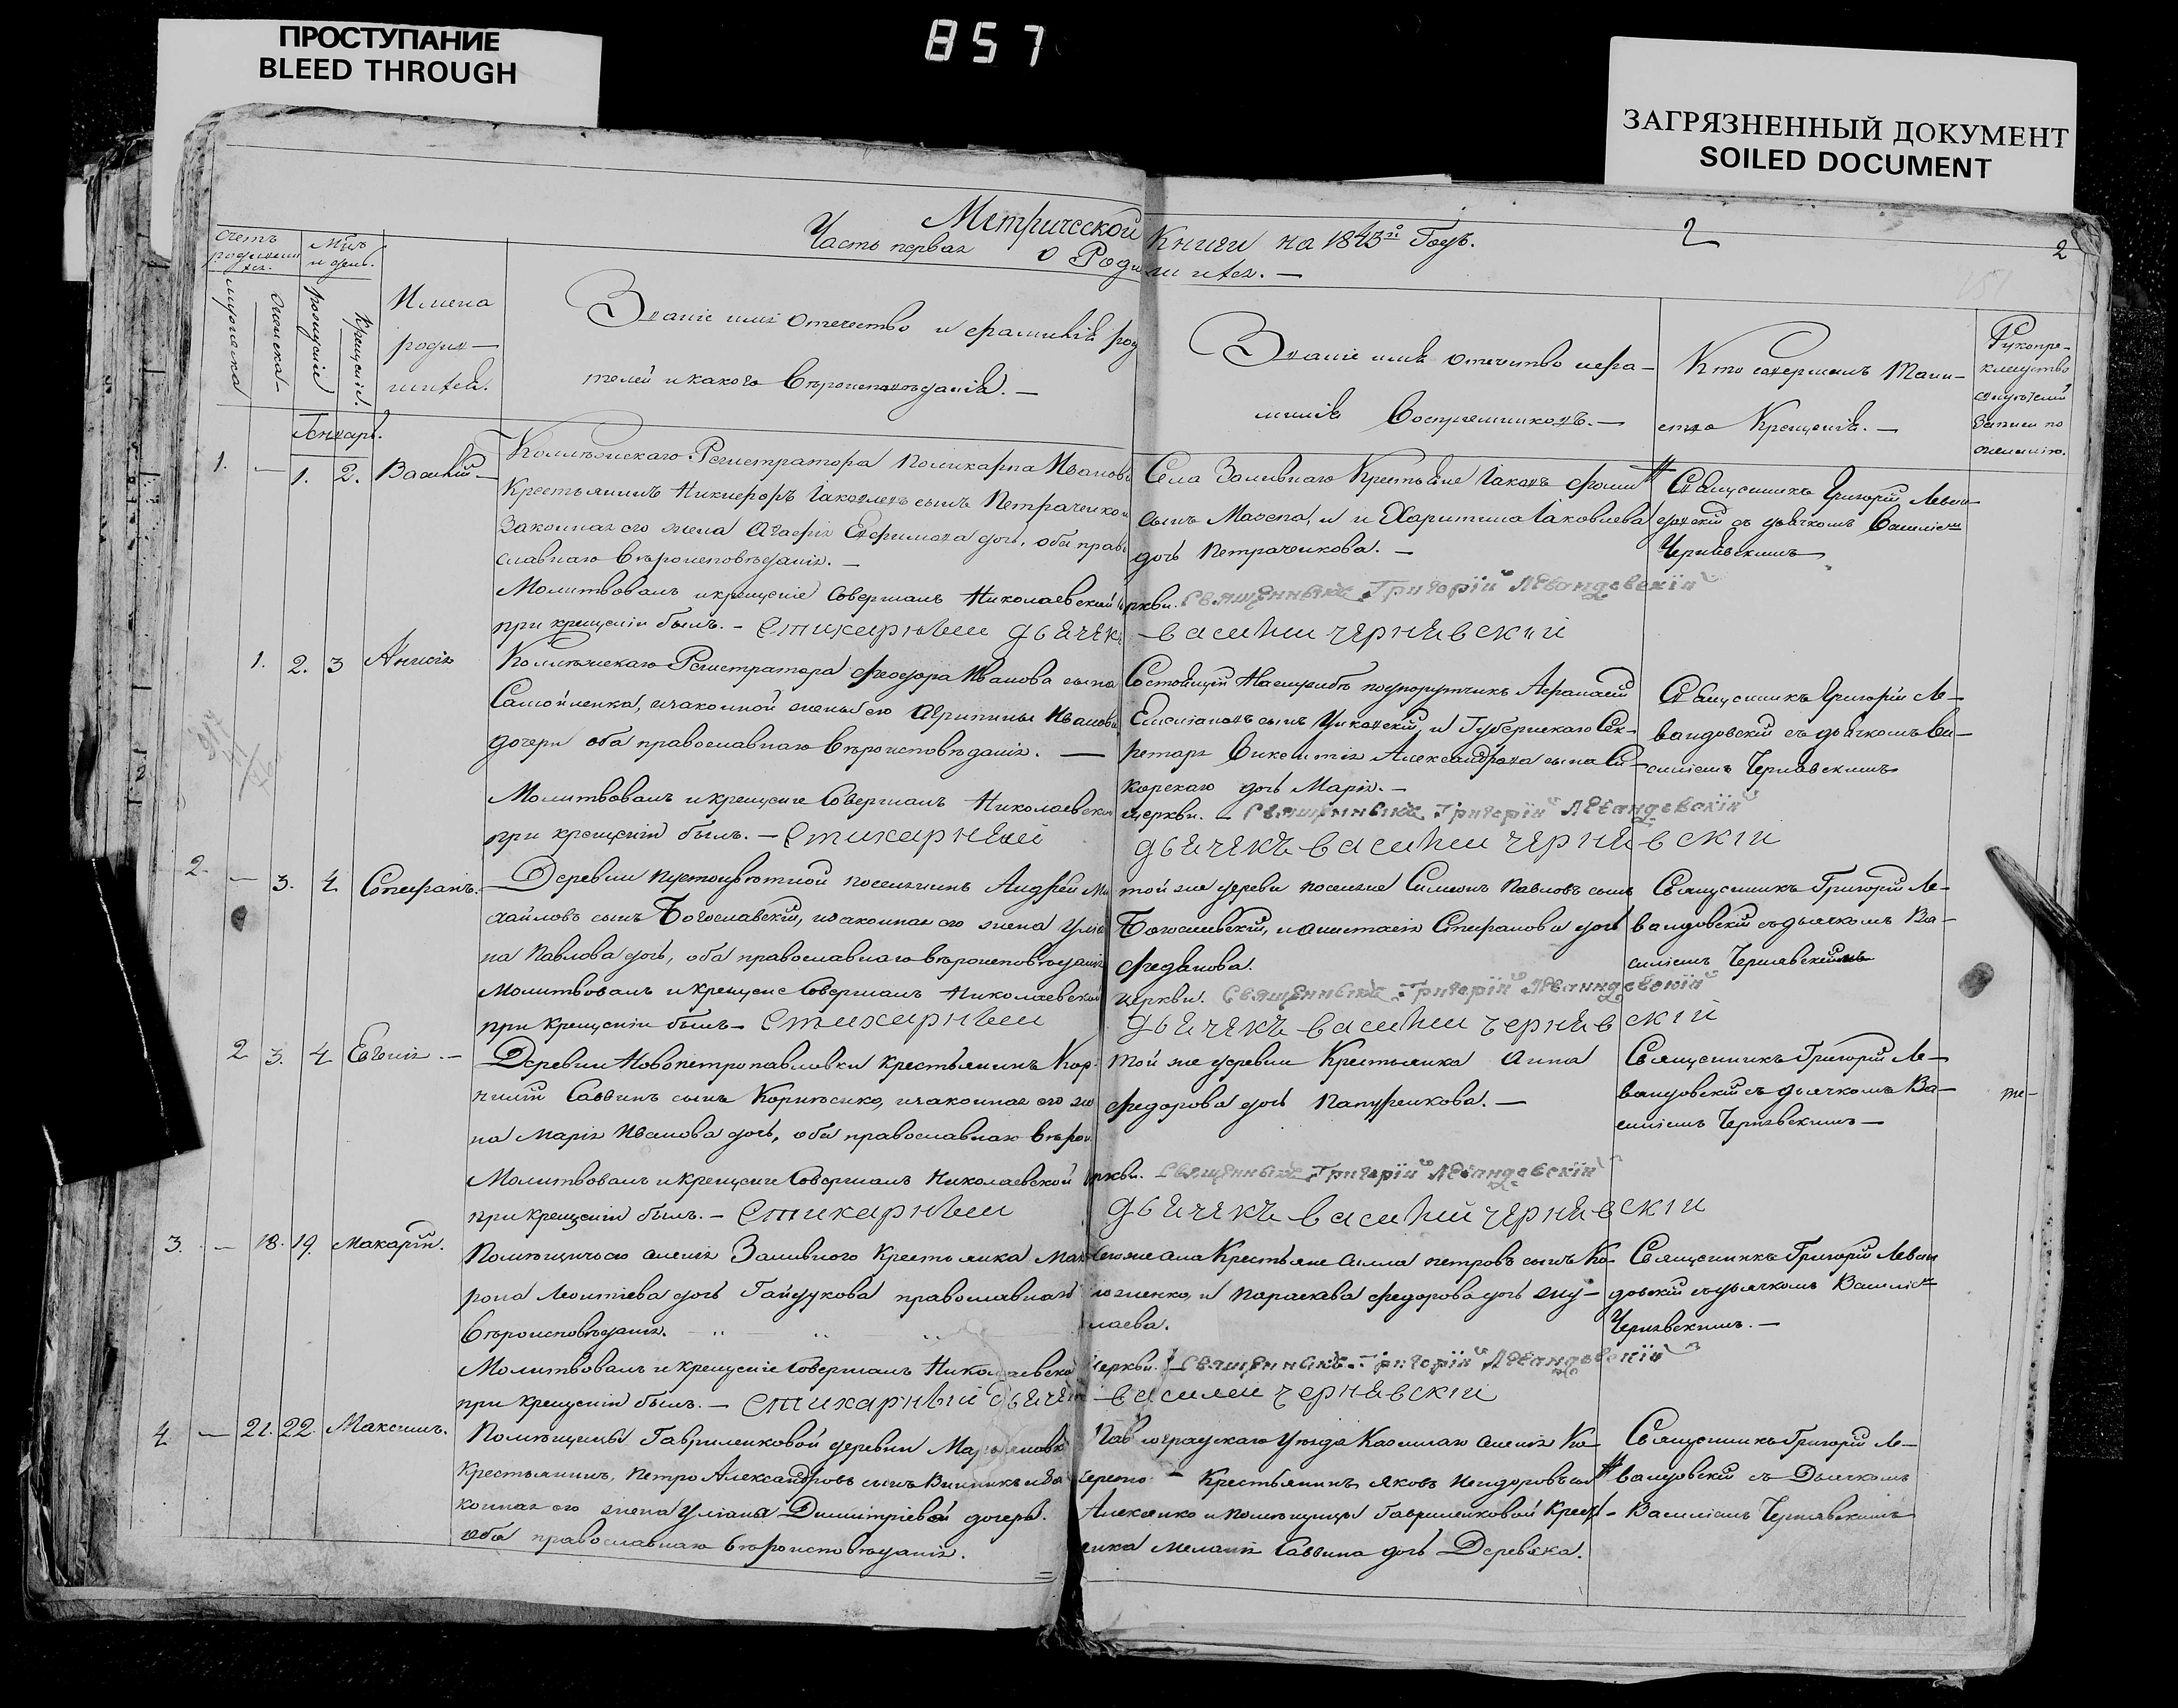 ПРОСТУПАНИЕ
BLEED THROUGH
857
ЗАГРЯЗНЕННЫЙ ДОКУМЕНТ
SOILED DOCUMENT
Метрической Книги на 1843й Годъ.
2
2
Часть первая о Родившихся. —
Счетъ родившихся.
мужеска
женска
Мѣсяцъ и день.
рожденіе
Крещенія.
Имена родившихся.
Званіе имя отечество и фамилія родителей и какого вѣроисповѣданія. —
Званіе имя отечество и фамилія Воспріемниковъ. —
Кто совершалъ Таинство Крещенія. —
Рукоприкладство свидѣтелей записи по желанію.
Генваря.
1. — 1. 2. Василій —
Коллежскаго Регистратора Поликарпа Иванов
Крестьянинъ Никифоръ Іаковлевъ сынъ Петраченко
законная его жена Агафія Евфимова дочь, оба право
славнаго вѣроисповѣданія. —
Села Заливнаго Крестьяне Іаковъ
сынъ Мазепа, и Харитина Іаковлева
дочь Петраченкова. —
Священникъ Григорій Леван
довскій съ дьячкомъ Василіемъ
Чернявскимъ
Молитвовалъ и крещеніе совершалъ Николаевской церкви. Священникъ Григорій Левандовскій
при крещеніи былъ. — Стихарный дьячекъ — Василій Чернявскій
1. 2. 3 Анисія
Коллежскаго Регистратора Феодора Иванова сына
Самойленка, и законной жены его Агрипины Иванов
дочери оба православнаго вѣроисповѣданія. —
подпорутчикъ Афанасій
сынъ и Губернскаго Сек-
ретаря Викентія Александрова сына Си-
корскаго дочь Марія. —
Священникъ Григорій Ле-
вандовскій съ дьячкомъ Ва-
силіемъ Чернявскимъ
Молитвовалъ и крещеніе совершалъ Николаевской церкви. — Священникъ Григорій Левандовскій
при крещеніи былъ. — Стихарный дьячекъ Василій Чернявскій
2. — 3. 4 Стефанъ.
Деревни поселянинъ Андрей Ми
хайловъ сынъ Богославскій, и законная его жена Улія
на Павлова дочь, оба православнаго вѣроисповѣданія
той же деревни поселяне Симеонъ Павловъ сынъ
Богославскій, и Анастасія Стефанова дочь
Священникъ Григорій Ле-
вандовскій съ дьячкомъ Ва-
силіемъ Чернявскимъ
Молитвовалъ и крещеніе совершалъ Николаевской церкви. Священникъ Григорій Левандовскій
при крещеніи былъ — Стихарный дьячекъ Василій Чернявскій
2 3. 4 Евгенія. —
Деревни Новопетропавловки крестьянинъ Кор-
нилій Саввинъ сынъ и законная его же
на Марія Иванова дочь, оба православнаго вѣрои
той же деревни Крестьянка Анна
Федорова дочь —
Священникъ Григорій Ле-
вандовскій съ дьячкомъ Ва-
силіемъ Чернявскимъ —
Молитвовалъ и крещеніе совершалъ Николаевской церкви. — Священникъ Григорій Левандовскій
при крещеніи былъ. — Стихарный дьячекъ Василій Чернявскій
3. — 18. 19. Макарій.
Помѣщичьего имѣнія Заливного Крестьянка Мат
рона Леонтіева дочь Гайдукова православнаго
вѣроисповѣданія.
Крестьяне петровъ сынъ
и Параскева Федорова дочь
Священникъ Григорій Леван
довскій съ дьячкомъ Василіемъ
Чернявскимъ. —
Молитвовалъ и крещеніе совершалъ Николаевской церкви. — Священникъ Григорій Левандовскій
при крещеніи былъ. — Стихарный дьячекъ — Василій Чернявскій
4 — 21. 22. Максимъ.
Помѣщицы Гавриленковой деревни
Крестьянинъ, Петро Александровъ сынъ и за
конная его жена Уліана Димитріевой дочерь.
оба православнаго вѣроисповѣданія.
Павлоградскаго Уѣзда Казеннаго имѣнія
Крестьянинъ Яковъ
Алексѣнко и помѣщицы Гавриленковой Крест
янка Меланія Саввина дочь Деревяка.
Священникъ Григорій Ле-
вандовскій съ Дьячкомъ
Василіемъ Чернявскимъ